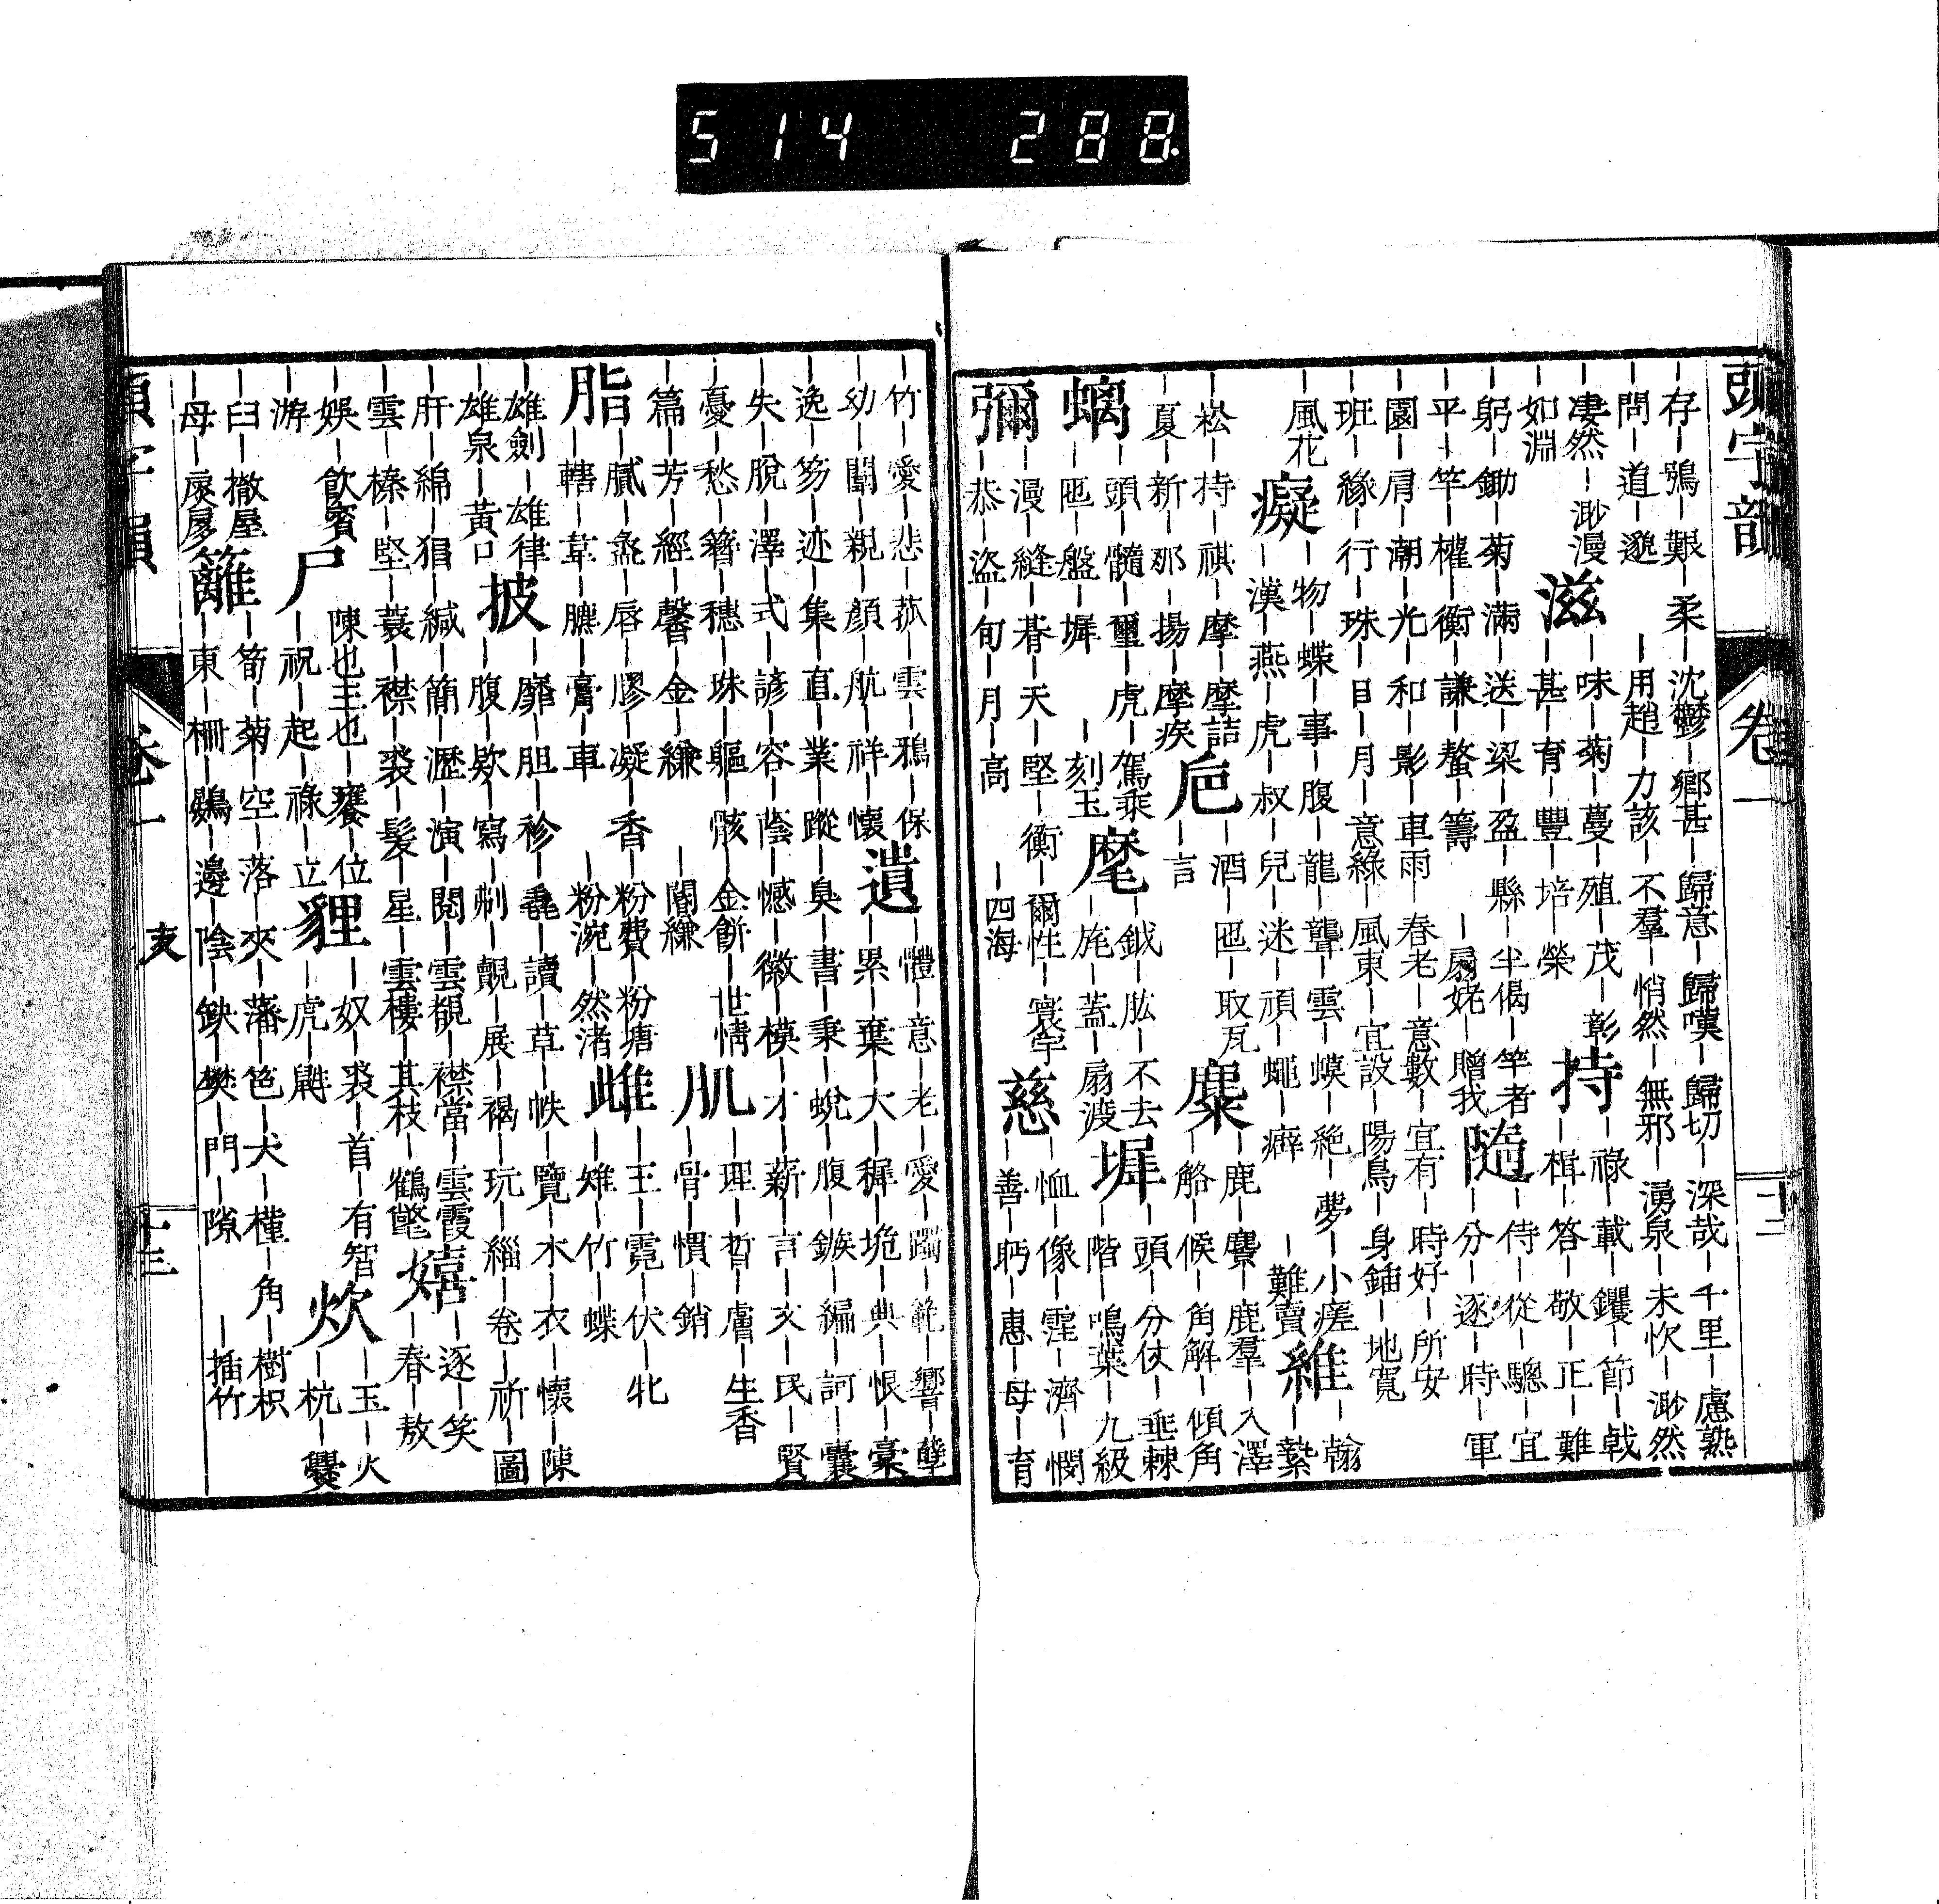 514 288
頭字韻 卷一 十二
存｜鴉｜艱｜柔｜沈鬱｜鄉甚｜歸意｜歸嘆｜歸切｜深哉｜千里｜慮熟
問｜道｜邈｜用趙｜力該｜不羣｜悄然｜無邪｜湧泉｜未忺｜渺然
凄然｜渺漫 滋｜味｜菊｜蔓｜殖｜茂｜彰 持｜祿｜載｜鑺｜節｜戟
如淵｜甚｜育｜豐｜培｜榮｜楫｜答｜敬｜正｜難
躬｜鋤｜菊｜滿｜送｜梁｜盈｜縣｜半偈｜竿者 隨｜侍｜從｜驄｜宜
平｜竿｜權｜衡｜謙｜螯｜籌｜扇姥｜贈我｜分｜逐｜時｜軍
園｜肩｜潮｜光｜和｜影｜車雨｜春老｜意數｜宜有｜時好｜所安
班｜緣｜行｜珠｜目｜月｜意綠｜風東｜宜設｜陽鳥｜身鍤｜地寬
風花 癡｜物｜蝶｜事｜腹｜龍｜聾｜雲｜蟆｜絶｜夢｜小瘥 維｜翰
漢｜燕｜虎｜叔｜兒｜迷｜頑｜蠅｜癖｜難賣｜縶
崧｜持｜祺｜摩｜摩詰 卮｜酒｜匜｜取瓦 麋｜鹿｜麞｜鹿羣｜入澤
夏｜新｜那｜揚｜摩疾｜言｜觡｜候｜角解｜傾角
螭｜頭｜髓｜璽｜虎｜駕乘 麾｜鉞｜肱｜不去 墀｜頭｜分仗｜垂棘
匜｜盤｜墀｜刻玉｜旄｜蓋｜扇渡｜階｜鳴葉｜九級
彌｜漫｜縫｜朞｜天｜堅｜衡｜爾性｜寰宇 慈｜恤｜像｜霔｜濟｜憫
恭｜盜｜旬｜月｜高｜四海｜善｜眄｜惠｜母｜育
竹｜愛｜悲｜菰｜雲｜鴉｜保 遺｜體｜意｜老｜愛｜躅｜範｜響｜孽
幼｜闈｜親｜顏｜航｜祥｜懷｜累｜棄｜大｜穉｜垝｜典｜恨｜稾
逸｜笏｜迹｜集｜直｜業｜蹤｜臭｜書｜秉｜蛻｜腹｜鏃｜編｜訶｜囊
失｜脫｜澤｜式｜諺｜容｜蔭｜憾｜徽｜模｜才｜薪｜言｜亥｜民｜賢
憂｜愁｜簪｜穗｜珠｜軀｜骸｜金餅｜世情 肌｜理｜晳｜膚｜生香
篇｜芳｜經｜馨｜金｜縑｜闍縑｜骨｜慣｜銷
脂｜膩｜盝｜唇｜膠｜凝｜香｜粉費｜粉塘 雌｜王｜霓｜伏｜牝
轄｜韋｜臕｜膏｜車｜粉涴｜然渚｜雉｜竹｜蝶
雄劍｜雄律 披｜靡｜胆｜袗｜毳｜讀｜草｜帙｜覽｜水｜衣｜懷｜陳
雄泉｜黃口｜腹｜欵｜寫｜剃｜覿｜展｜褐｜玩｜緇｜卷｜祈｜圖
肝｜綿｜猖｜緘｜簡｜瀝｜演｜閱｜雲覩｜襟當｜雲霞 嬉｜逐｜笑
雲｜榛｜堅｜蓑｜襟｜裘｜髮｜星｜雲樓｜其枝｜鶴氅｜春｜敖
娛｜飲賓 尸｜陳也主也｜饔｜位 貍｜奴｜裘｜首｜有智 炊｜玉｜火
游｜祝｜起｜祿｜立｜虎｜鼪｜杭｜爨
臼｜撤屋 籬｜筍｜菊｜空｜落｜夾｜藩｜笆｜犬｜槿｜角｜樹枳
母｜扊扅｜東｜柵｜鷃｜邊｜陰｜缺｜樊｜門｜隙｜插竹
卷一 支 十三